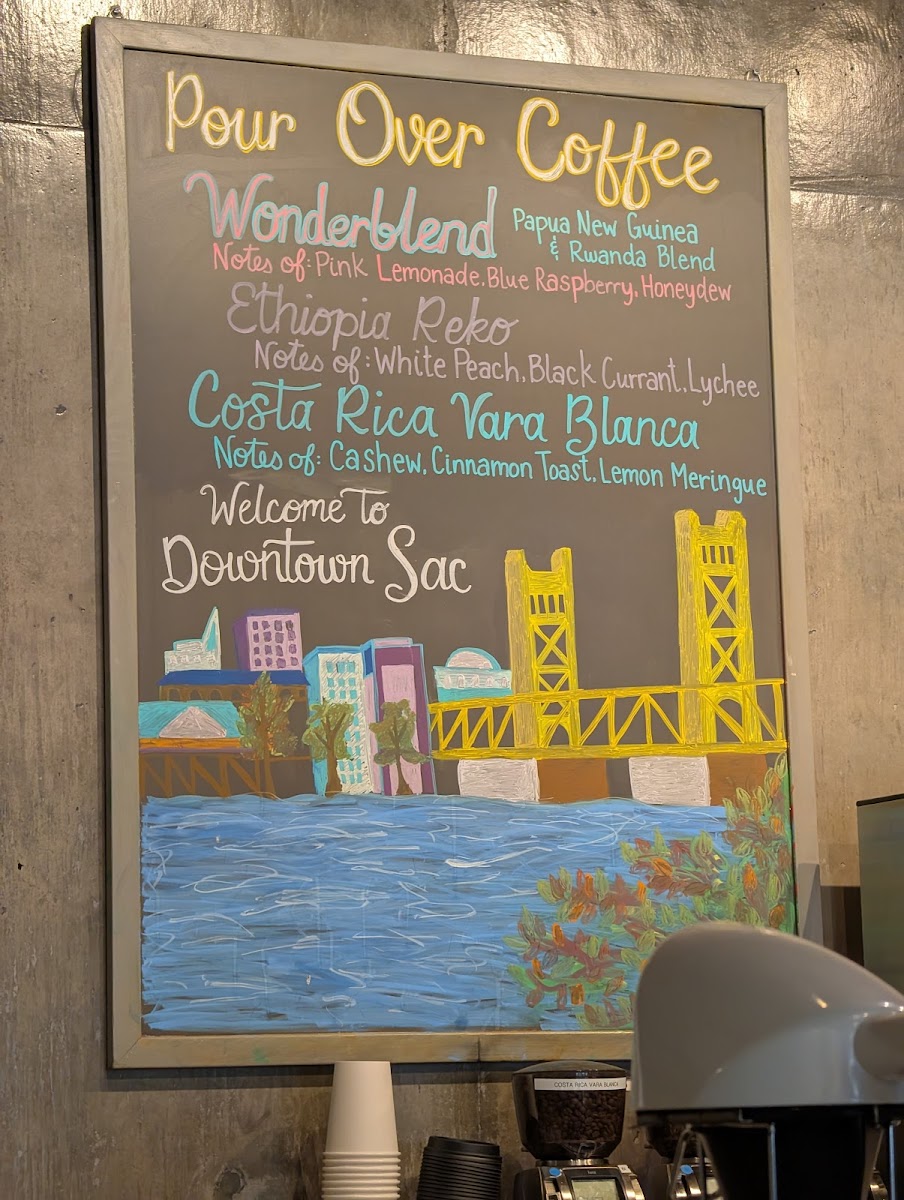 Pour Over Coffee
Wonderblend
Papua New Guinea
& Rwanda Blend
Notes of: Pink Lemonade. Blue Raspberry. Honeydew
Ethiopia Reko
Notes of: White Peach. Black Currant. Lychee
Costa Rica Vara Blanca
Notes of: Cashew. Cinnamon Toast. Lemon Meringue
Welcome To
Downtown Sac
COSTA RICA VARA BLANCA